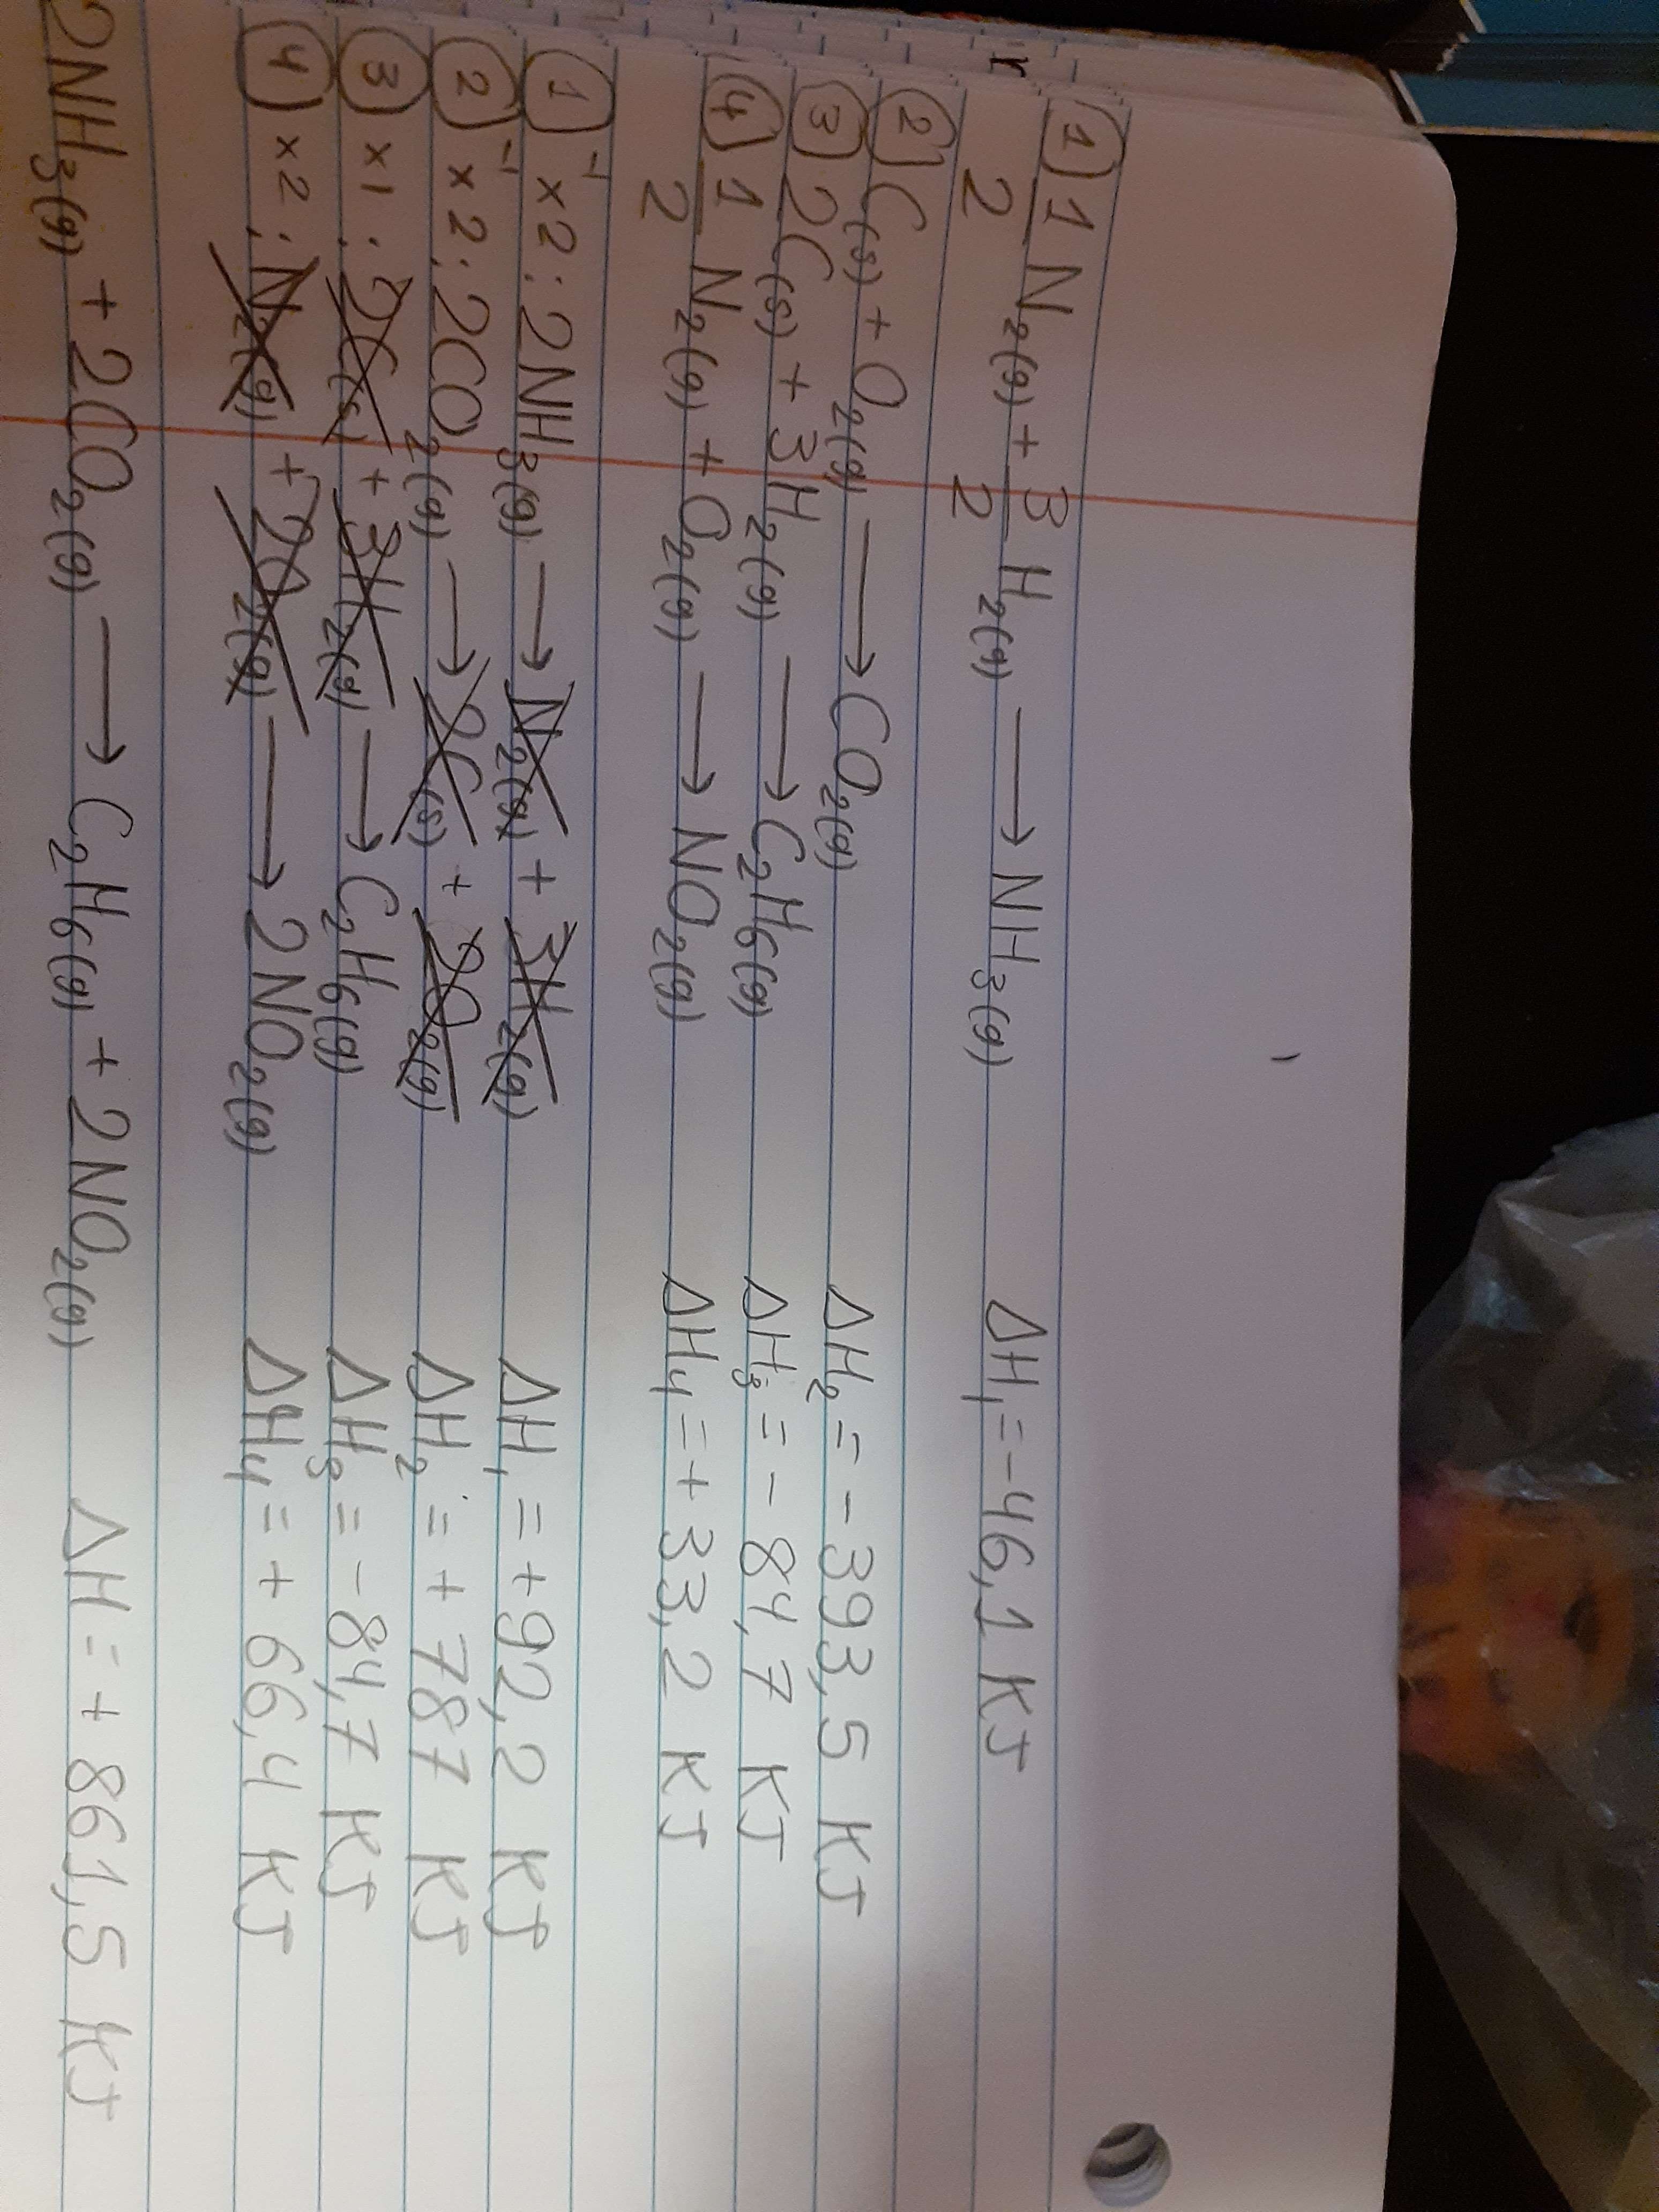 r
① 1/2 N₂(g) + 3/2 H₂(g) ⟶ NH₃(g) ΔH₁ = -46,1 KJ
② C(s) + O₂(g) ⟶ CO₂(g) ΔH₂ = -393,5 KJ
③ 2C(s) + 3H₂(g) ⟶ C₂H₆(g) ΔH₃ = -84,7 KJ
④ 1/2 N₂(g) + O₂(g) ⟶ NO₂(g) ΔH₄ = +33,2 KJ
①⁻¹ ×2 : 2NH₃(g) ⟶ N₂(g) + 3H₂(g) ΔH₁ = +92,2 KJ
②⁻¹ ×2 : 2CO₂(g) ⟶ 2C(s) + 2O₂(g) ΔH₂ = +787 KJ
③ ×1 : 2C(s) + 3H₂(g) ⟶ C₂H₆(g) ΔH₃ = -84,7 KJ
④ ×2 : N₂(g) + 2O₂(g) ⟶ 2NO₂(g) ΔH₄ = +66,4 KJ
2NH₃(g) + 2CO₂(g) ⟶ C₂H₆(g) + 2NO₂(g) ΔH = +861,5 KJ